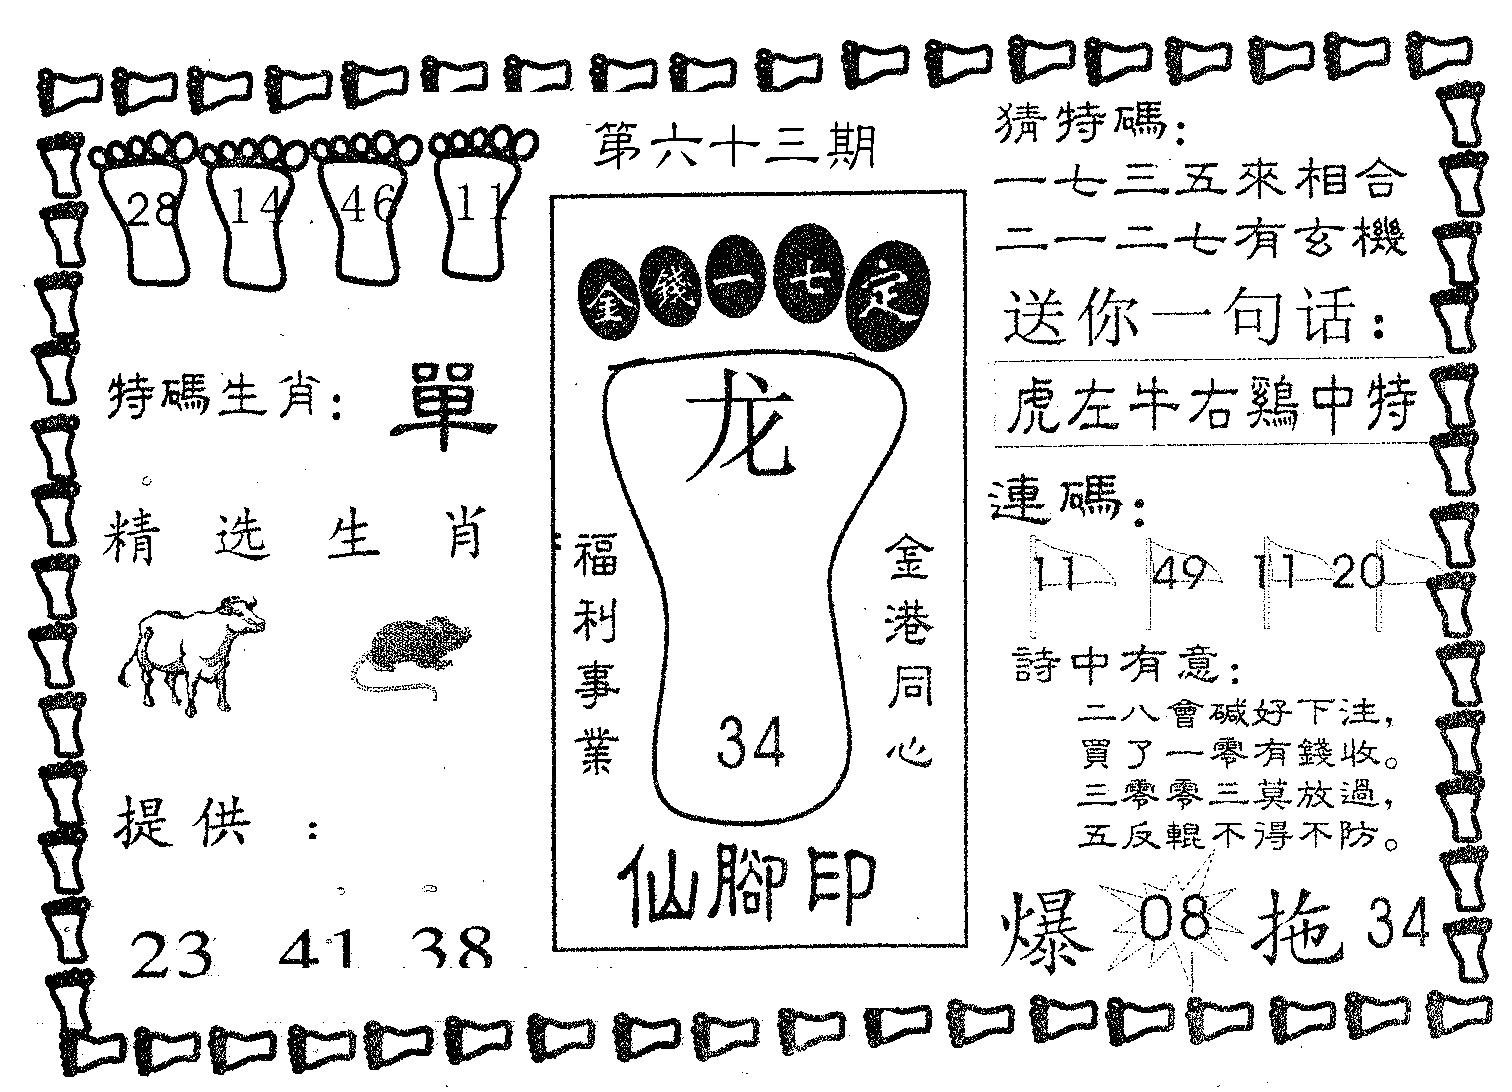 第六十三期
28 14 46 11
特碼生肖：單
精选生肖
提供：
23 41 38
金錢一七定
龙
福利事業
金港同心
34
仙腳印
猜特碼：
一七三五來相合
二一二七有玄機
送你一句话：
虎左牛右鷄中特
連碼：
11 49 11 20
詩中有意：
二八會碱好下注，
買了一零有錢收。
三零零三莫放過，
五反輥不得不防。
爆 08 拖 34